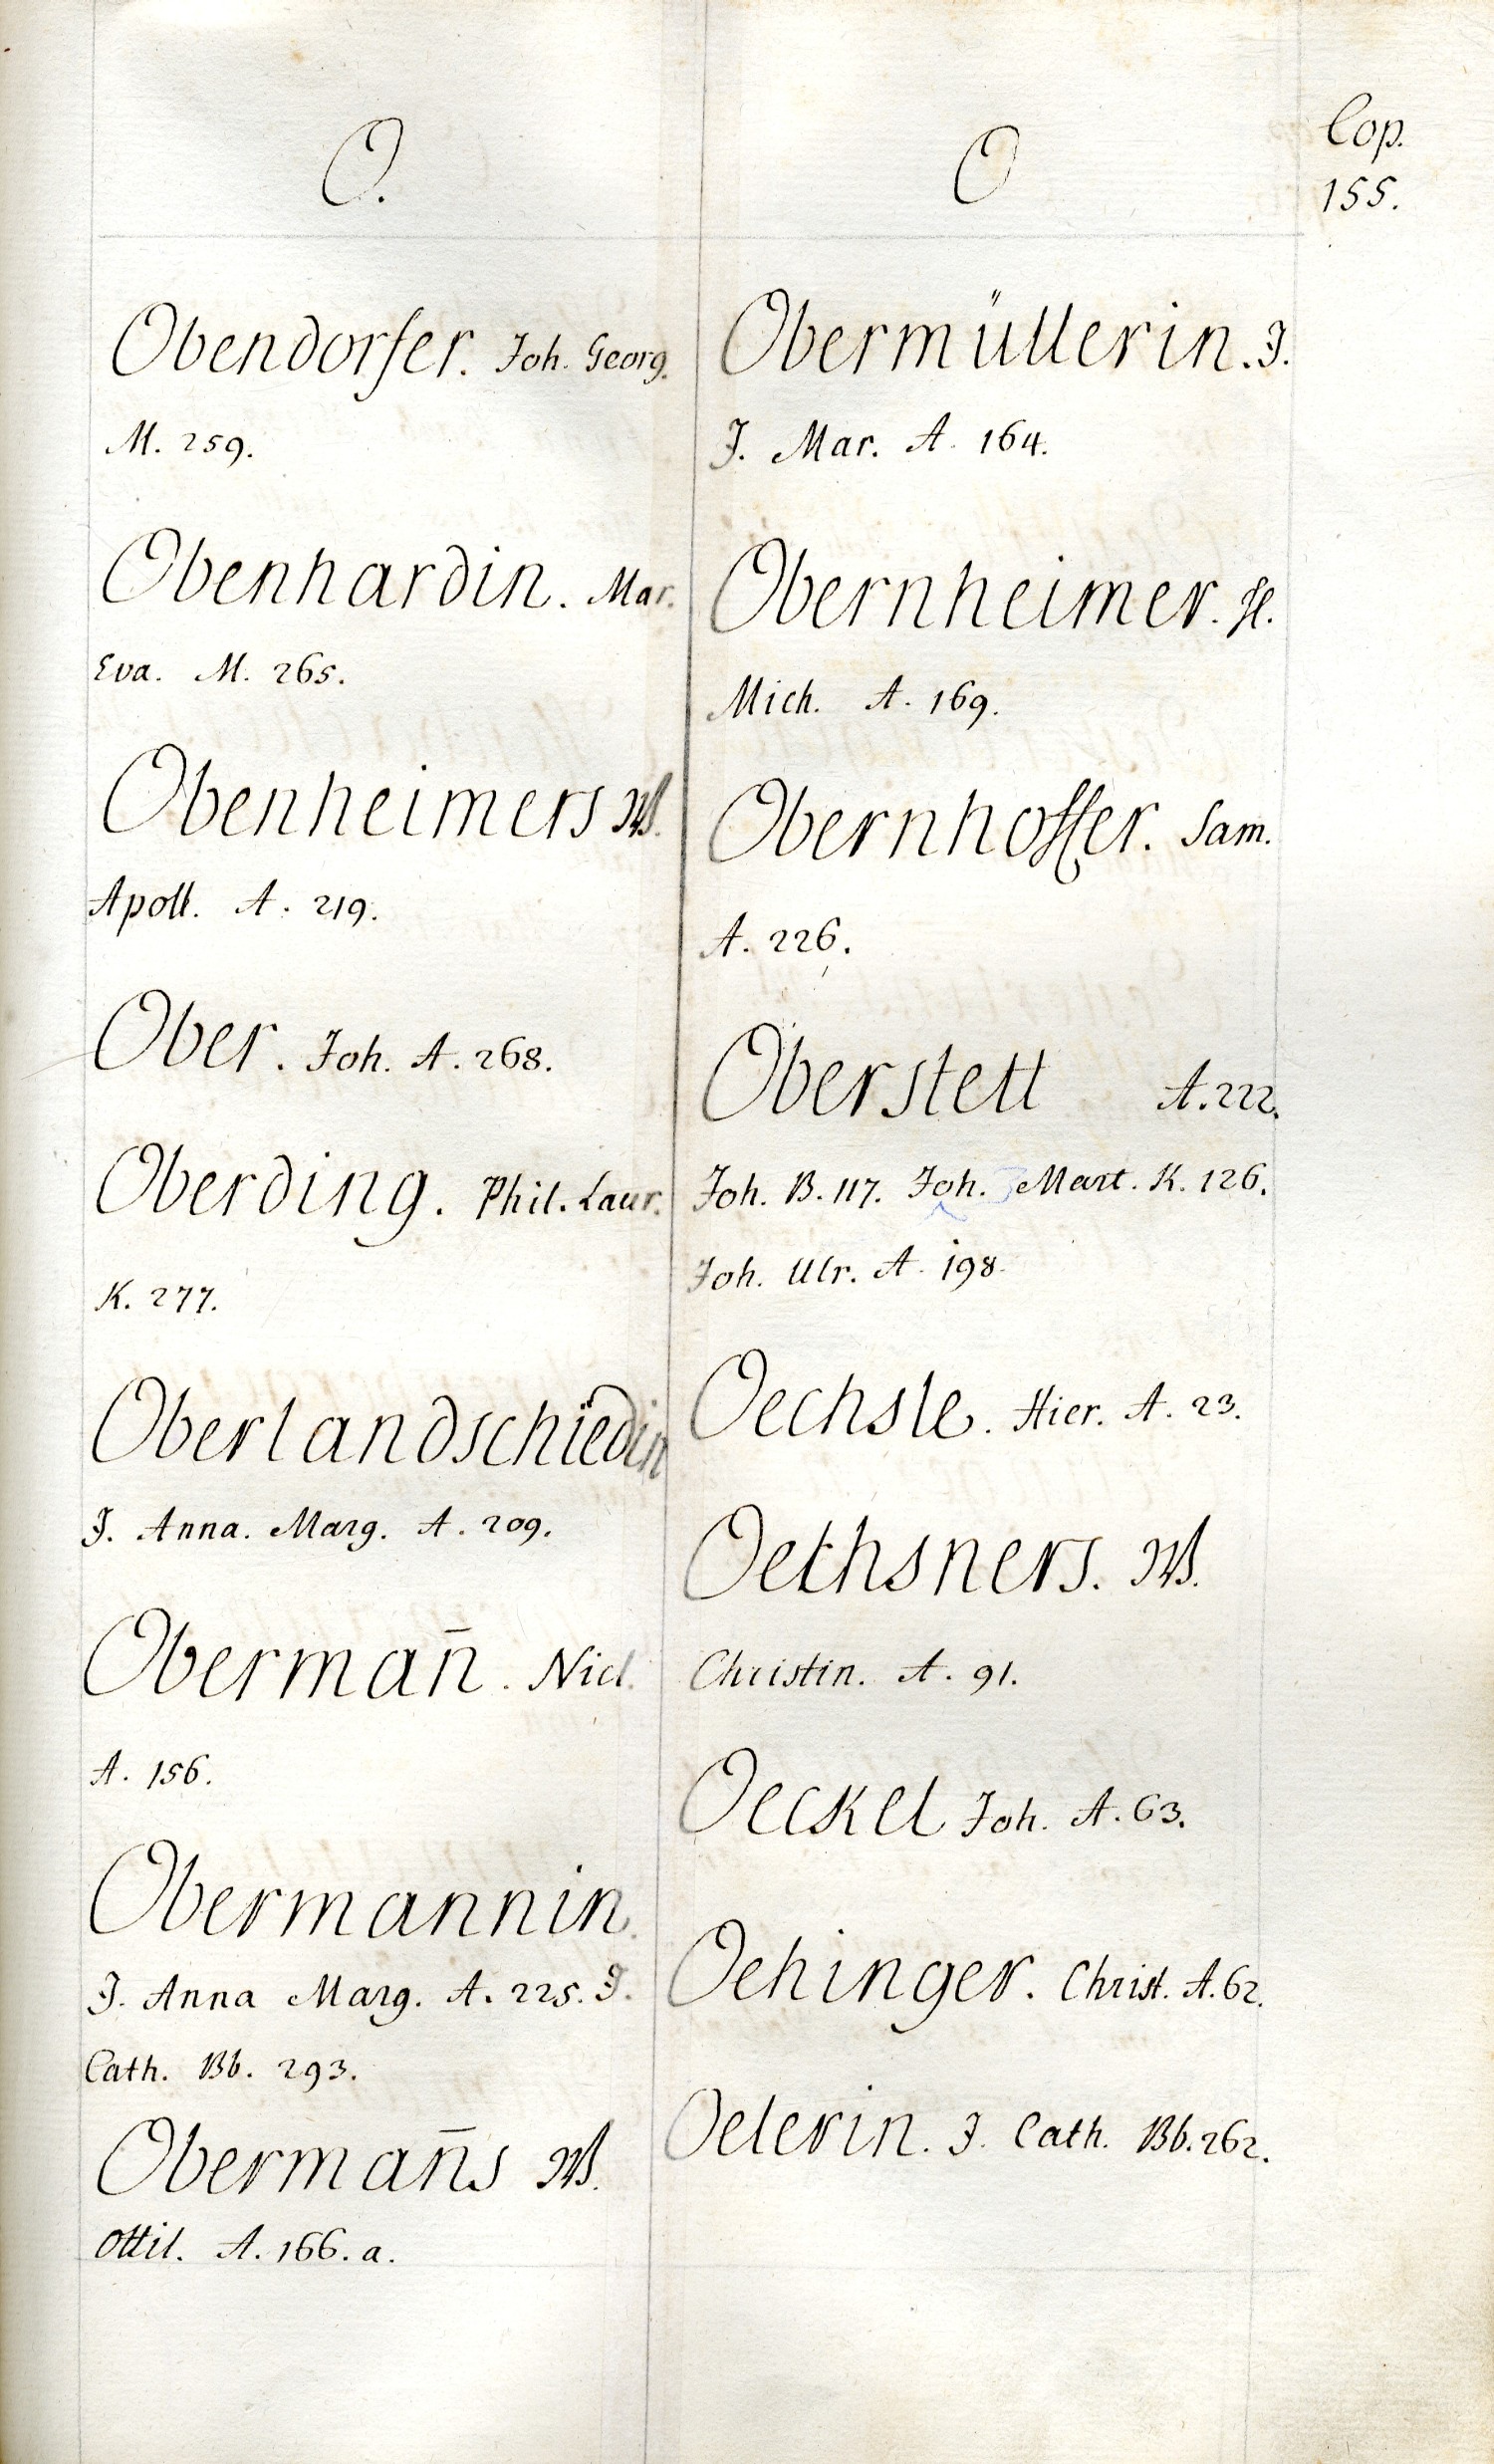 O.
Obendorfer. Joh. Georg.
M. 259.
Obenhardin. Mar.
Eva. M. 265.
Obenheimers W.
Apoll. A. 219.
Ober. Joh. A. 268.
Oberding. Phil. Laur.
K. 277.
Oberlandschiedin
J. Anna. Marg. A. 209.
Oberman̄. Nicl.
A. 156.
Obermannin.
J. Anna Marg. A. 225. J.
Cath. Bb. 293.
Oberman̄s W.
Ottil. A. 166. a.
O
Obermüllerin. J.
J. Mar. A. 164.
Obernheimer. H.
Mich. A. 169.
Obernhoffer. Sam.
A. 226.
Oberstett A. 222.
Joh. B. 117. Joh. Mart. K. 126.
Joh. Ulr. A. 198.
Oechsle. Hier. A. 23.
Oethsners. W.
Christin. A. 91.
Oeckel Joh. A. 63.
Oehinger. Christ. A. 62.
Oelerin. J. Cath. Bb. 262.
Cop.
155.